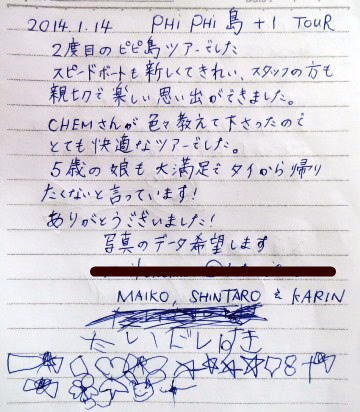 2014.1.14 PHi PHi 島 +1 TOUR
2度目のピピ島ツアーでした
スピードボートも新しくてきれい、スタッフの方も
親切で楽しい思い出ができました。
CHEMさんが色々教えて下さったので
とても快適なツアーでした。
5歳の娘も大満足でタイから帰り
たくないと言っています!
ありがとうございました!
写真のデータ希望します
MAIKO, SHINTARO & KARIN